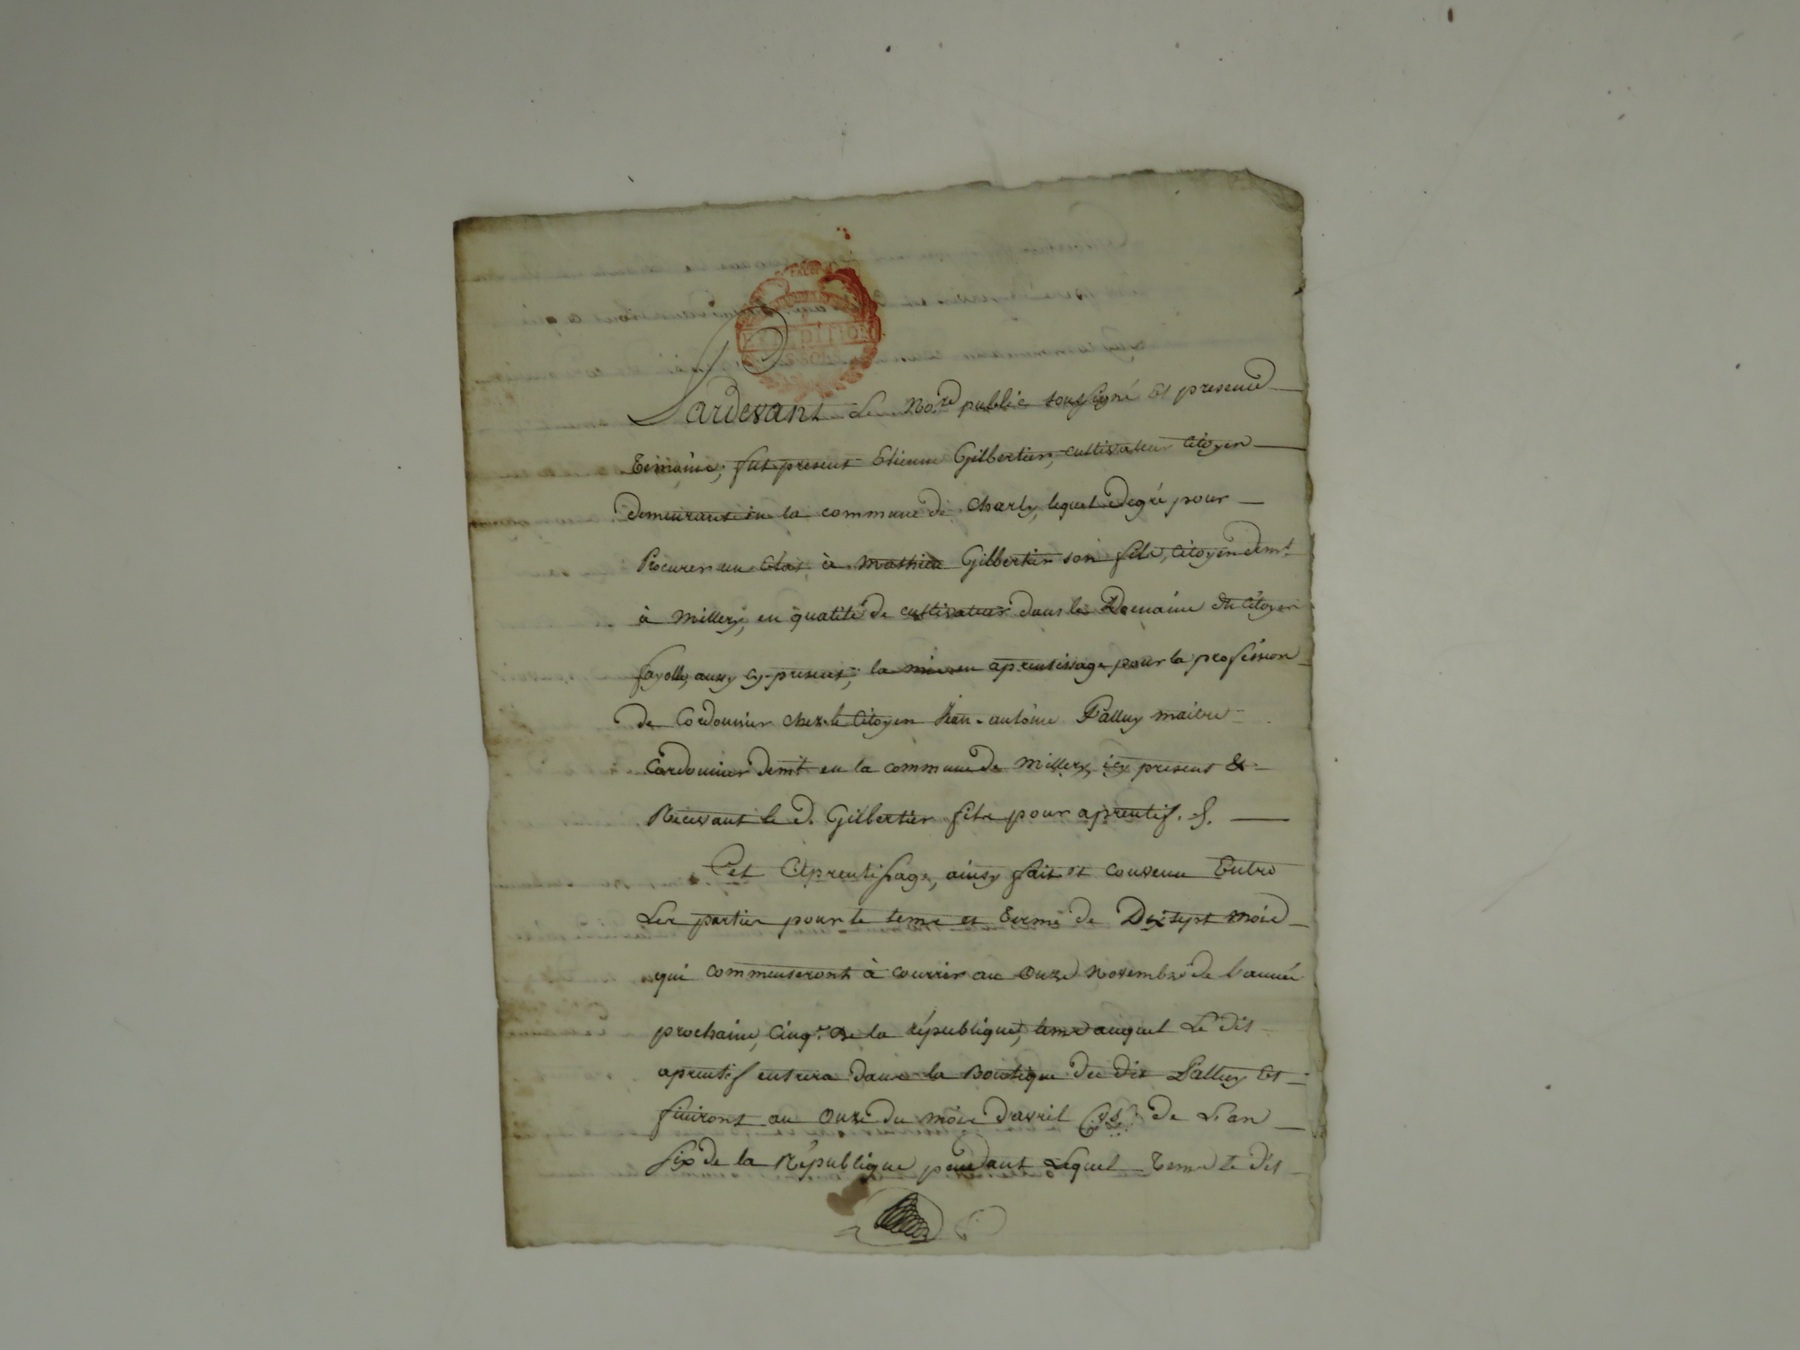 EXPÉDITION
Pardevant Le No.re public soussigné Et presence
Temoins, fut present Etienne Gilbertier, cultivateur Citoyen
demeurant en la commune de Charly, lequel degré pour
Procurer un Etat à Mathieu Gilbertier son fils, Citoyen demt
à Millery, en qualité de cultivateur dans le Domaine du Citoyen
fayolle, aussy cy-present, la mis en aprentissage pour la profession
de Cordonnier chez le Citoyen Jean-antoine Palluy maitre
Cordonnier demt en la commune de Millery, icy present &
Recevant le d. Gilbertier fils pour aprentif.
Cet Aprentissage, ainsy fait et convenu Entre
Les parties pour le tems et terme de Dix sept mois
qui commenseront à courrir au Onze Novembre de l'année
prochaine, Cinq.e de la république, tems auquel Le dit
aprentif entrera dans la Boutique du dit Palluy Et
finiront au Onze du mois d'avril de L'an
six de la République pendant Lequel Tems le dit